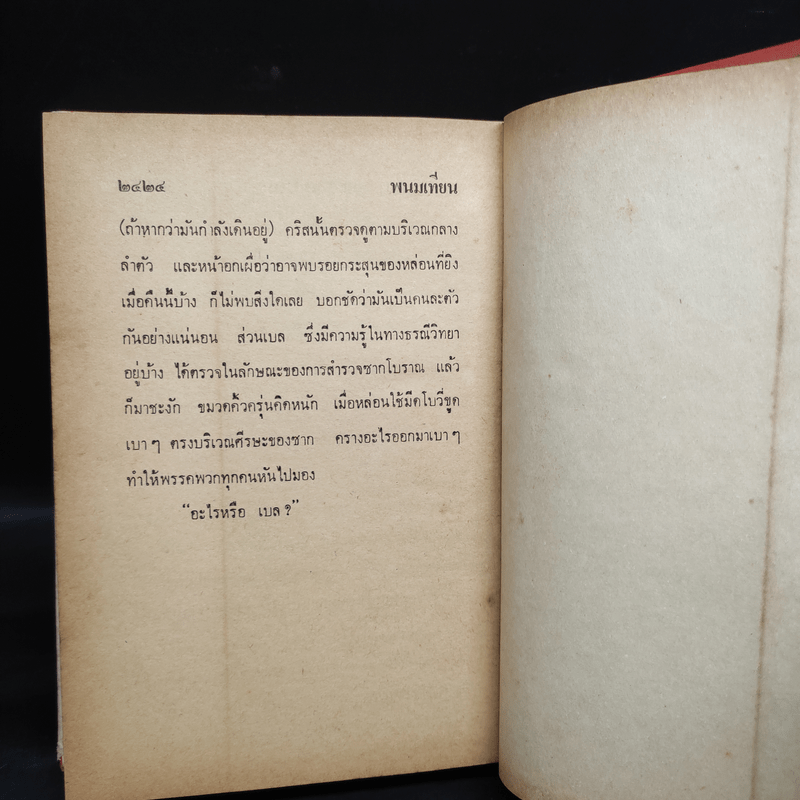 ๒๔๒๔ พนมเทียน
(ถ้าหากว่ามันกำลังเดินอยู่) คริสนั้นตรวจดูตามบริเวณกลาง
ลำตัว และหน้าอกเผื่อว่าอาจพบรอยกระสุนของหล่อนที่ยิง
เมื่อคืนนี้บ้าง ก็ไม่พบสิ่งใดเลย บอกชัดว่ามันเป็นคนละตัว
กันอย่างแน่นอน ส่วนเบล ซึ่งมีความรู้ในทางธรณีวิทยา
อยู่บ้าง ได้ตรวจในลักษณะของการสำรวจซากโบราณ แล้ว
ก็มาชะงัก ขมวดคิ้วครุ่นคิดหนัก เมื่อหล่อนใช้มีดโบวี่ขูด
เบา ๆ ตรงบริเวณศีรษะของซาก ครางอะไรออกมาเบา ๆ
ทำให้พรรคพวกทุกคนหันไปมอง
“อะไรหรือ เบล ?”